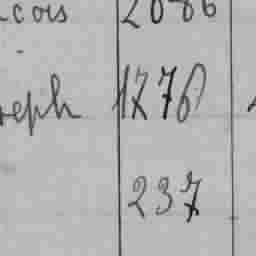 cois 2086
reph 1276
237